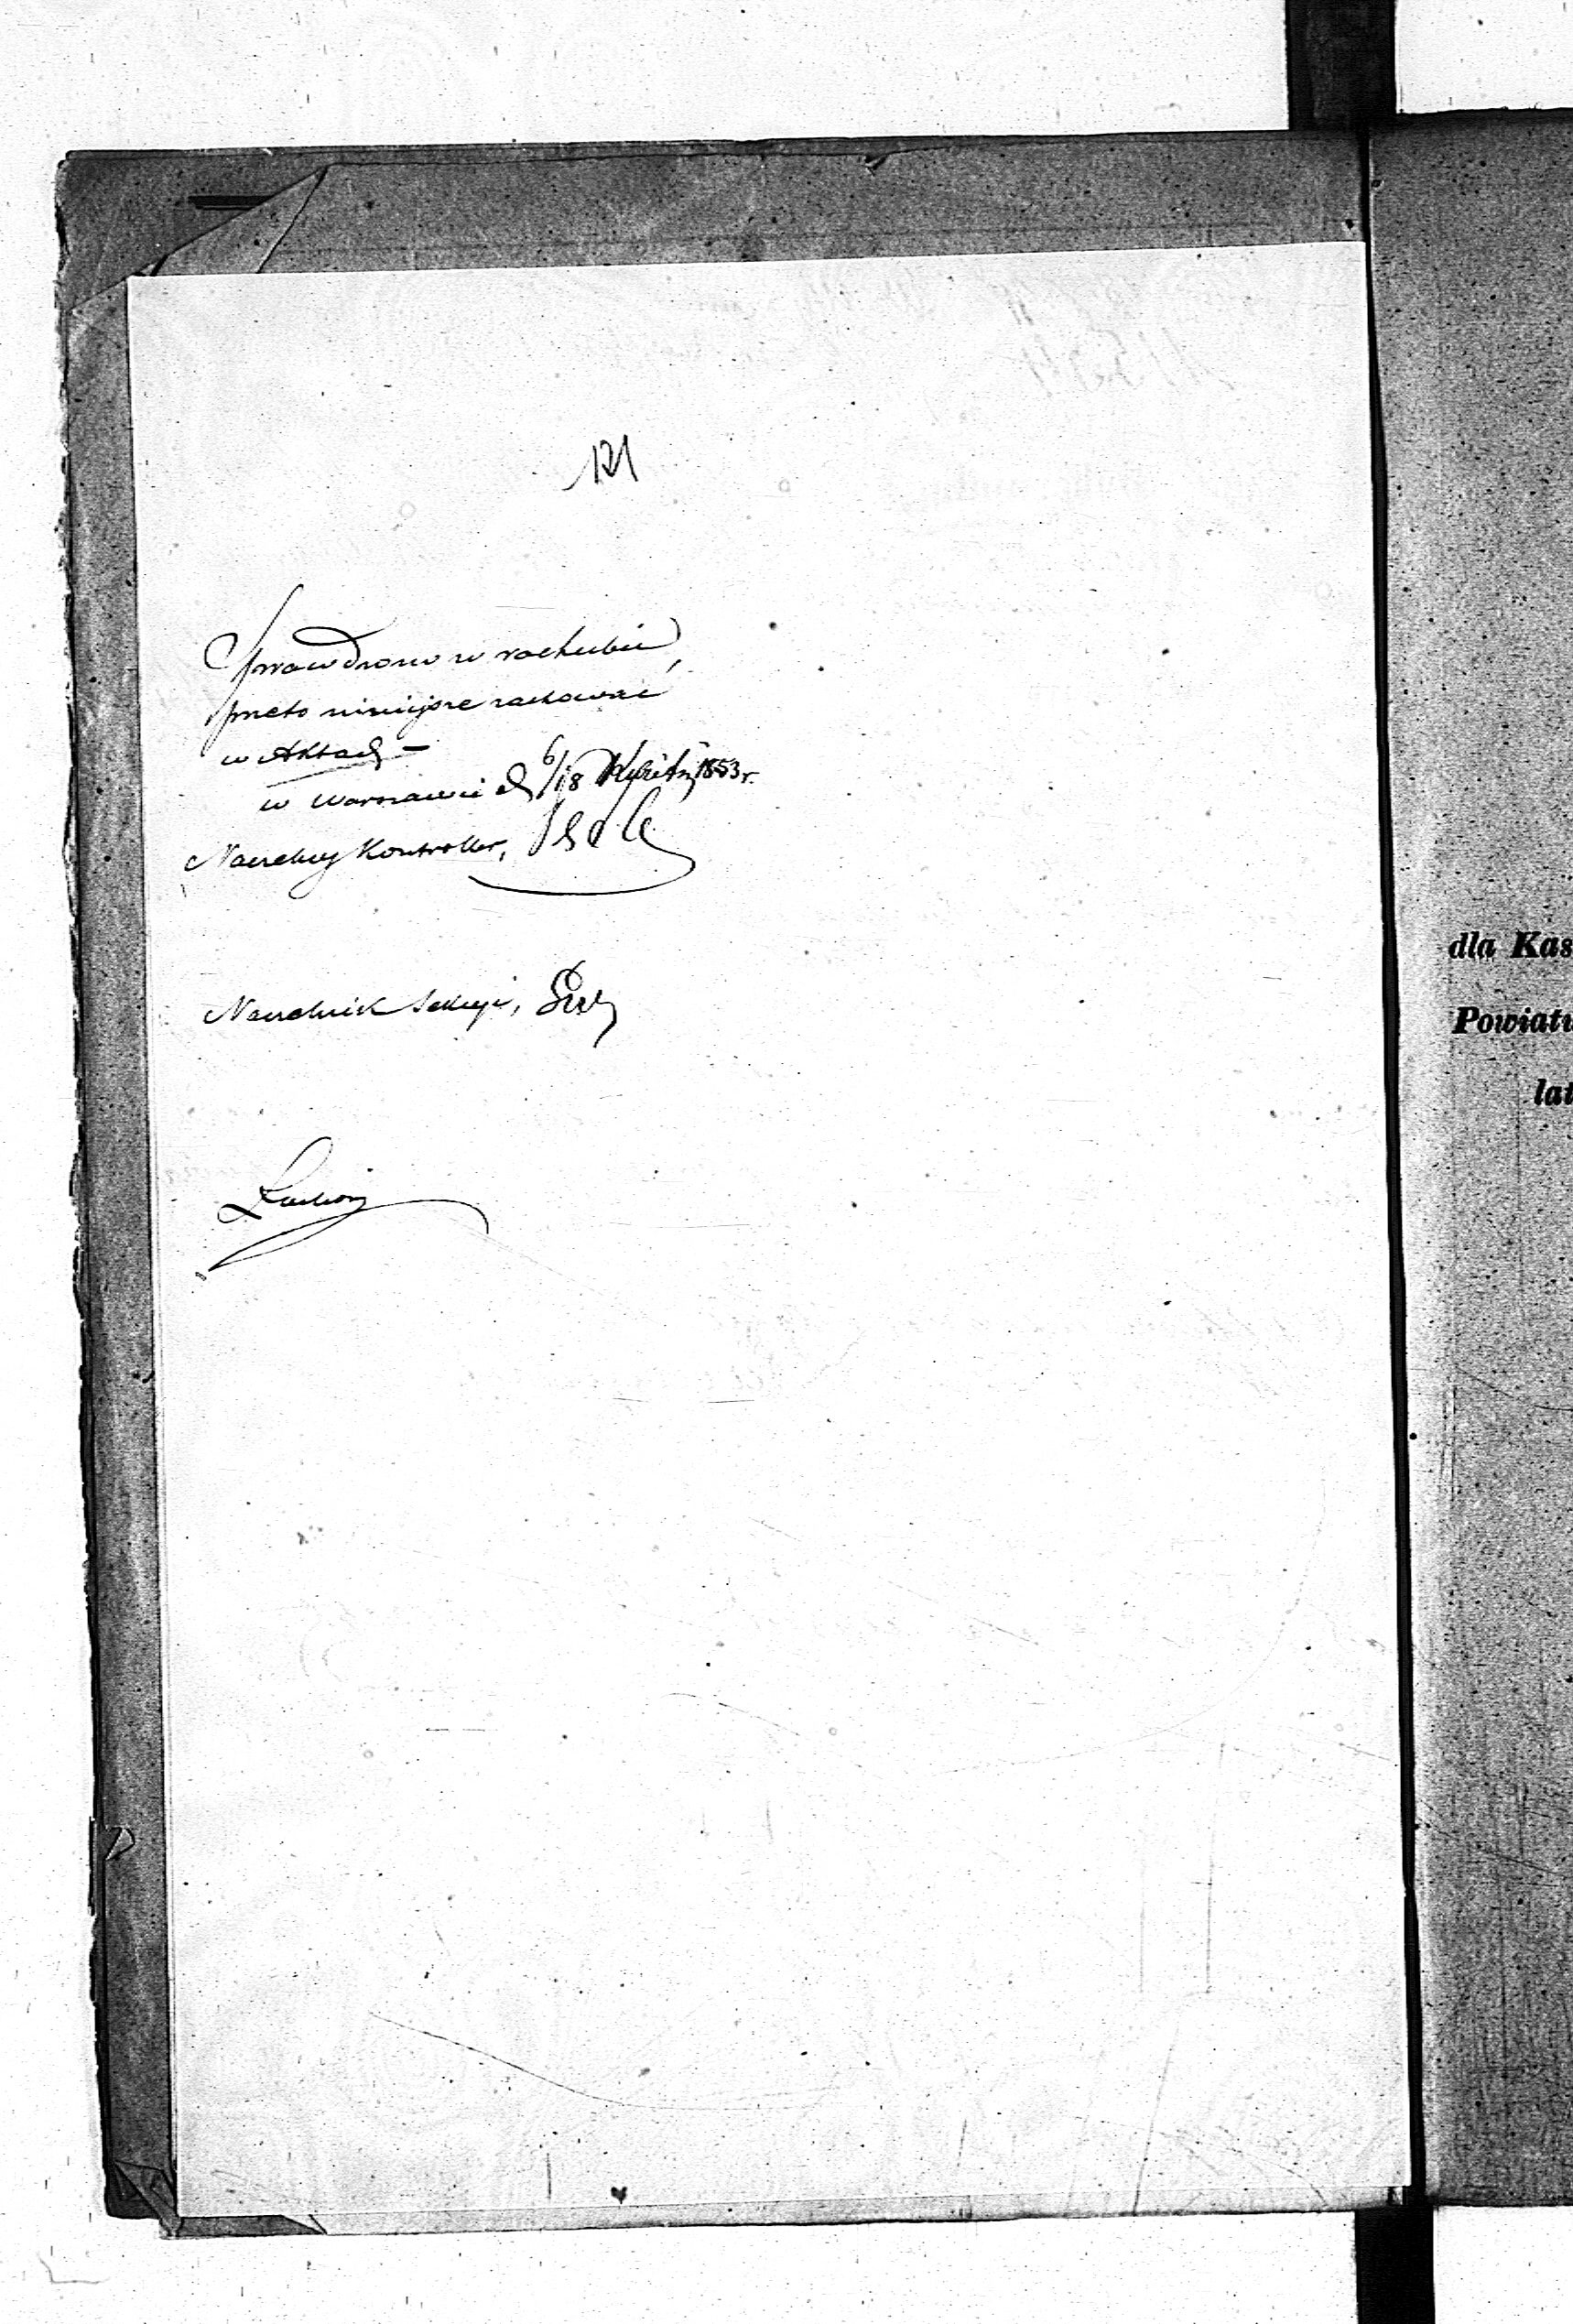 121
Sprawdzono w rachubie,
przeto niniejsze zachować
w Aktach —
w Warszawie d. 6/18 1853 r.
Naczelny Kontroller,
Naczelnik Sekcyi,
dla Kas
Powiatu
lat